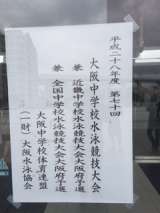 平成二十八年度 第七十四回
大阪中学校水泳競技大会
兼 近畿中学校水泳競技大会大阪府予選
兼 全国中学校水泳競技大会大阪府予選
大阪中学校体育連盟
(一財)大阪水泳協会